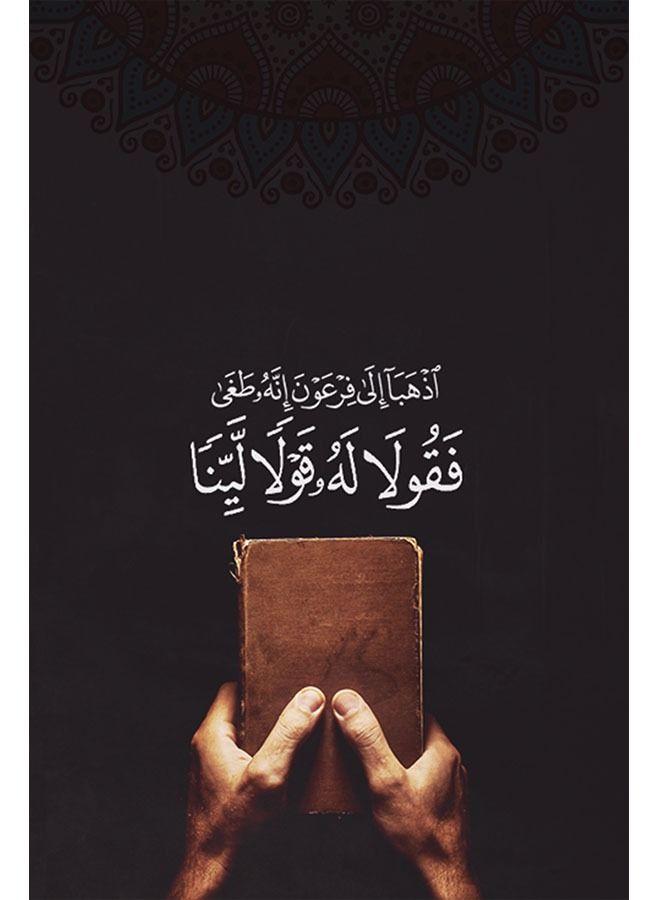 ٱذْهَبَآ إِلَىٰ فِرْعَوْنَ إِنَّهُۥ طَغَىٰ
فَقُولَا لَهُۥ قَوْلًا لَّيِّنًا